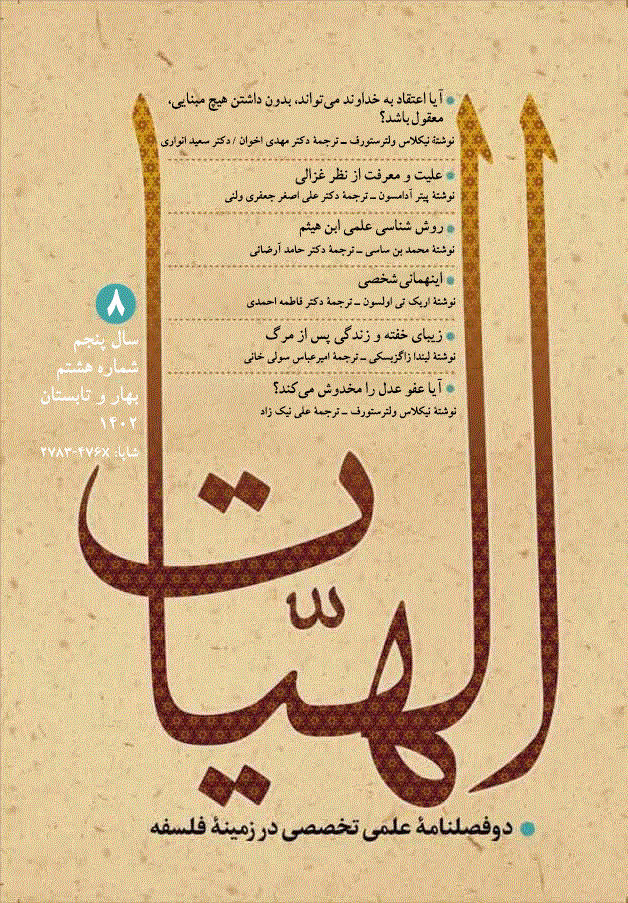 آیا اعتقاد به خداوند می‌تواند، بدون داشتن هیچ مبنایی،
معقول باشد؟
نوشتهٔ نیکلاس ولترستورف ــ ترجمهٔ دکتر مهدی اخوان / دکتر سعید انواری
علیت و معرفت از نظر غزالی
نوشتهٔ پیتر آدامسون ــ ترجمهٔ دکتر علی اصغر جعفری ولنی
روش شناسی علمی ابن هیثم
نوشتهٔ محمد بن ساسی ــ ترجمهٔ دکتر حامد آرضائی
اینهمانی شخصی
نوشتهٔ اریک تی اولسون ــ ترجمهٔ دکتر فاطمه احمدی
زیبای خفته و زندگی پس از مرگ
نوشتهٔ لیندا زاگزبسکی ــ ترجمهٔ امیرعباس سولی خانی
آیا عفو عدل را مخدوش می‌کند؟
نوشتهٔ نیکلاس ولترستورف ــ ترجمهٔ علی نیک زاد
۸
سال پنجم
شماره هشتم
بهار و تابستان
۱۴۰۲
شاپا: ۲۷۸۳-۴۷۶X
الهیّات
دوفصلنامهٔ علمی تخصصی در زمینهٔ فلسفه